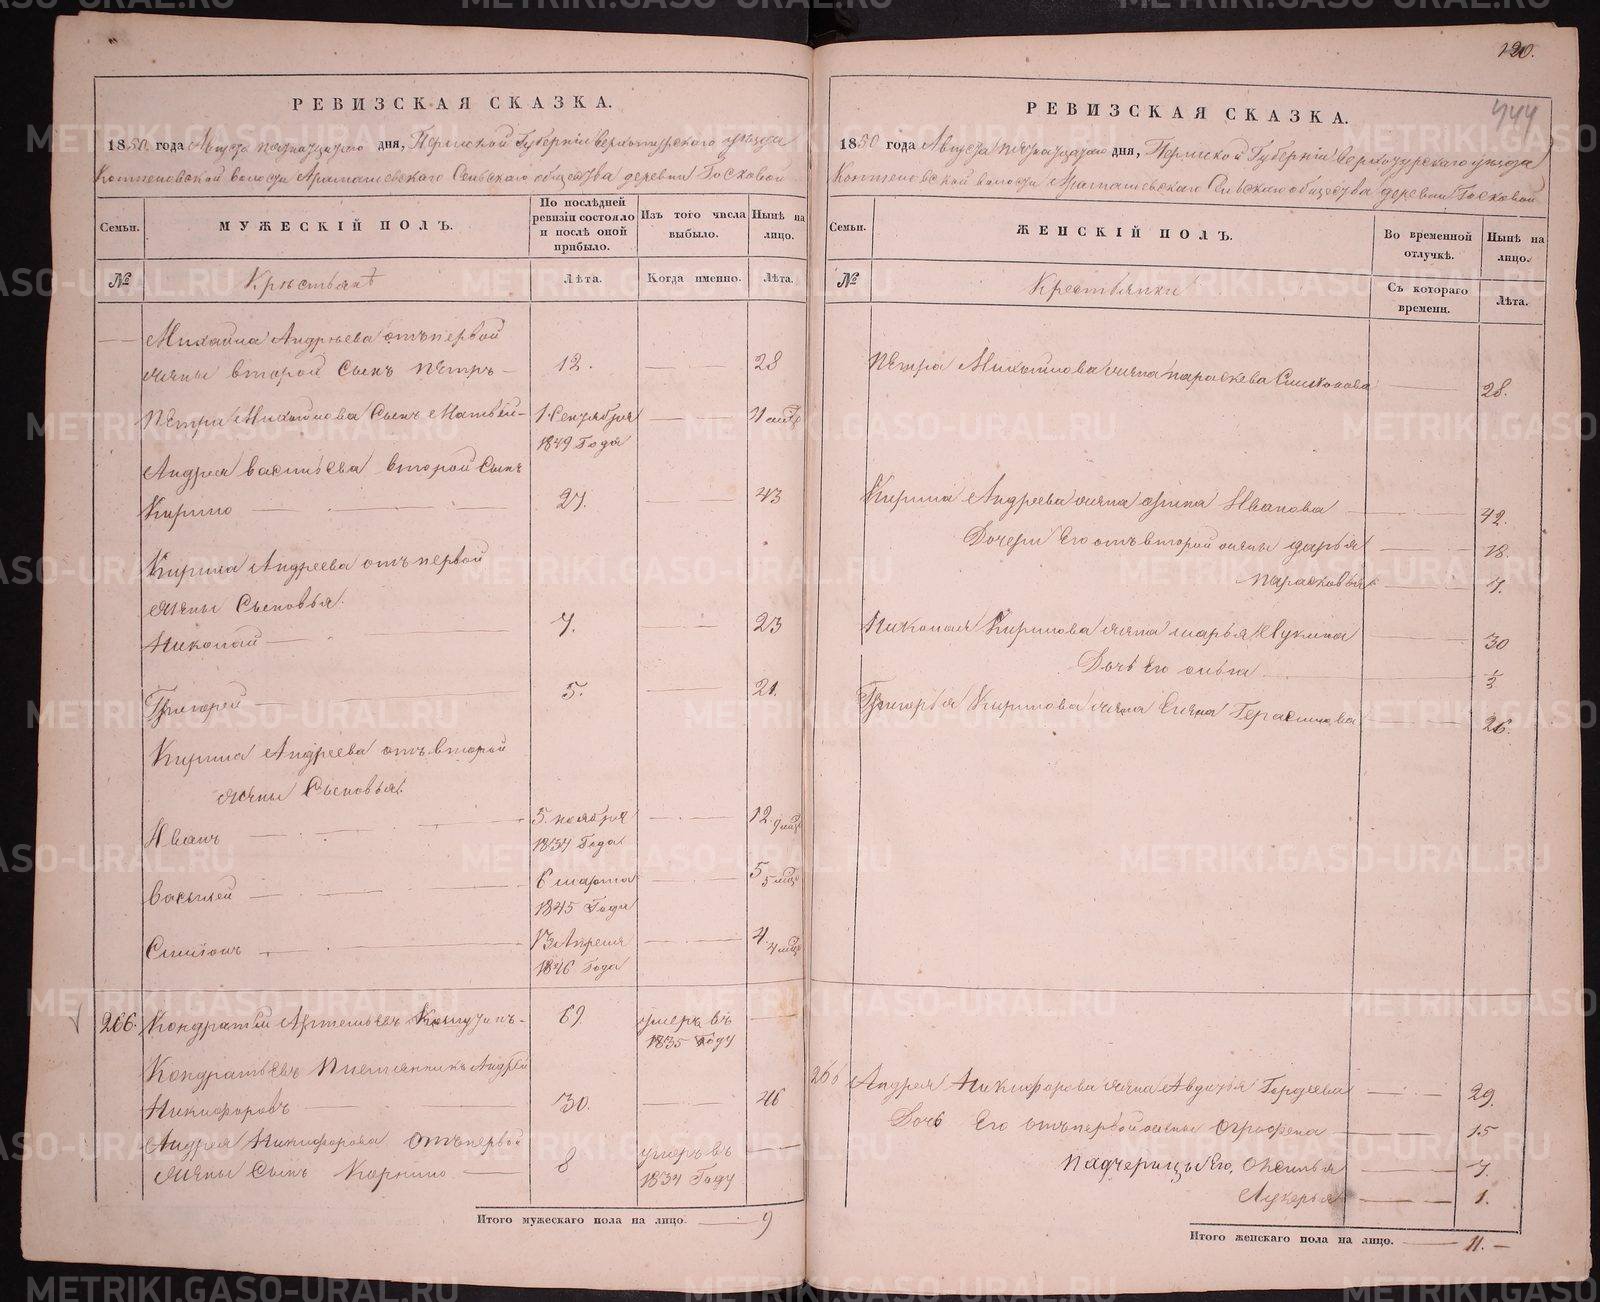 РЕВИЗСКАЯ СКАЗКА.
1850 года Августа пятнадцатаго дня, Пермской Губерніи Верхотурскаго уезда
Коптеловской волости Арамашевскаго Сельскаго общества деревни Косковой
Семьи. МУЖЕСКІЙ ПОЛЪ. По послѣдней ревизіи состояло и послѣ оной прибыло. Изъ того числа выбыло. Нынѣ на лицо.
№ Крестьянѣ Лѣта. Когда именно. Лѣта.
Михайла Андреева отъ первой
жены второй Сынъ Петръ 12. 28
Петра Михайлова Сынъ Матвей 1 Сентября 1849 Года
Андрея васильева второй Сынъ
Кирило 27. 43
Кирила Андреева отъ первой
жены Сыновья
Николай 7. 23
Григорей 5. 21.
Кирила Андреева отъ второй
жены Сыновья
Иванъ 5 ноября 1837 Года 12. 9 мцъ
Василей 6 марта 1845 Года 5 5 мцъ
Симіонъ 13 Апреля 1846 Года 4. 4 мцъ
266. Кондратій Артемьевъ 69. умеръ въ 1835 Году
Кондратьевъ Племянникъ Андрей
Никифоровъ 30. 46
Андрея Никифорова отъ первой
жены Сынъ Корнило 8 умеръ въ 1837 Году
Итого мужескаго пола на лицо. 9
120.
444
РЕВИЗСКАЯ СКАЗКА.
1850 года Августа пятнадцатаго дня, Пермской Губерніи Верхотурскаго уезда
Коптеловской волости Арамашевскаго Сельскаго общества деревни Косковой
Семьи. ЖЕНСКІЙ ПОЛЪ. Во временной отлучкѣ. Нынѣ на лицо.
№ Крестьянки Съ котораго времени. Лѣта.
Петра Михайлова жена параскева Симионова 28.
Кирила Андреева жена Ирина Иванова 42.
Дочери Его отъ второй жены дарья 18.
парасковья 7.
Николая Кирилова жена марья 30
Дочь Его 1/2
Григорья Кирилова жена Елена Герасимова 26.
266 Андрея Никифорова жена Авдотья Гордеева 29.
Дочь Его отъ первой жены Огрофена 15
падчерицы Его, Оксинья 7
Лукерья 1.
Итого женскаго пола на лицо. 11.
METRIKI.GASO-URAL.RU